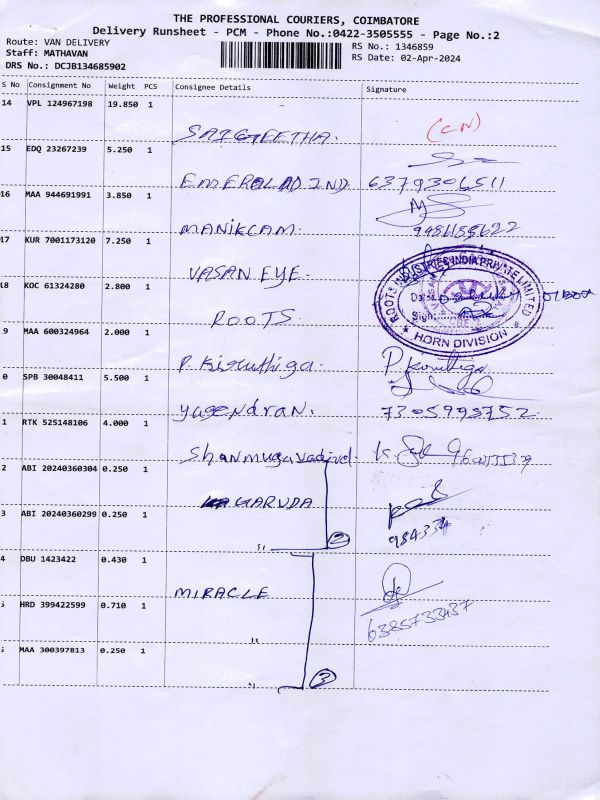 THE PROFESSIONAL COURIERS, COIMBATORE
Delivery Runsheet - PCM - Phone No.:0422-3505555 - Page No.:2
Route: VAN DELIVERY
Staff: MATHAVAN
DRS No.: DCJB134685902
RS No.: 1346859
RS Date: 02-Apr-2024
S No Consignment No Weight PCS Consignee Details Signature
14 VPL 124967198 19.850 1
SAIGEETHA. (CN)
15 EDQ 23267239 5.250 1
EMERALAD IND 6379306511
16 MAA 944691991 3.850 1
MANIKCAM.
17 KUR 7001173120 7.250 1
VASAN EYE.
18 KOC 61324280 2.800 1
ROOTS
ROOTS INDUSTRIES INDIA PRIVATE LIMITED
HORN DIVISION
9 MAA 600324964 2.000 1
P. Kiruthiga.
0 SPB 30048411 5.500 1
yagendran. 7305998752
1 RTK 525148106 4.000 1
Shanmugavadivel.
2 ABI 20240360304 0.250 1
GARUDA
3 ABI 20240360299 0.250 1
984334
" 2
4 DBU 1423422 0.430 1
MIRACLE
5 HRD 399422599 0.710 1
6385733437
"
MAA 300397813 0.250 1
" 3